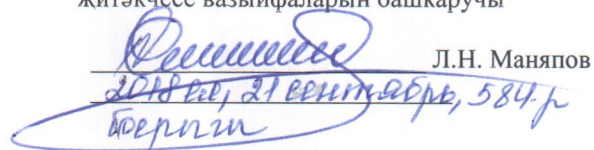 җитәкчесе вазыйфаларын башкаручы
Л.Н. Маняпов
2018 ел, 21 сентябрь, 584-р
боерыгы